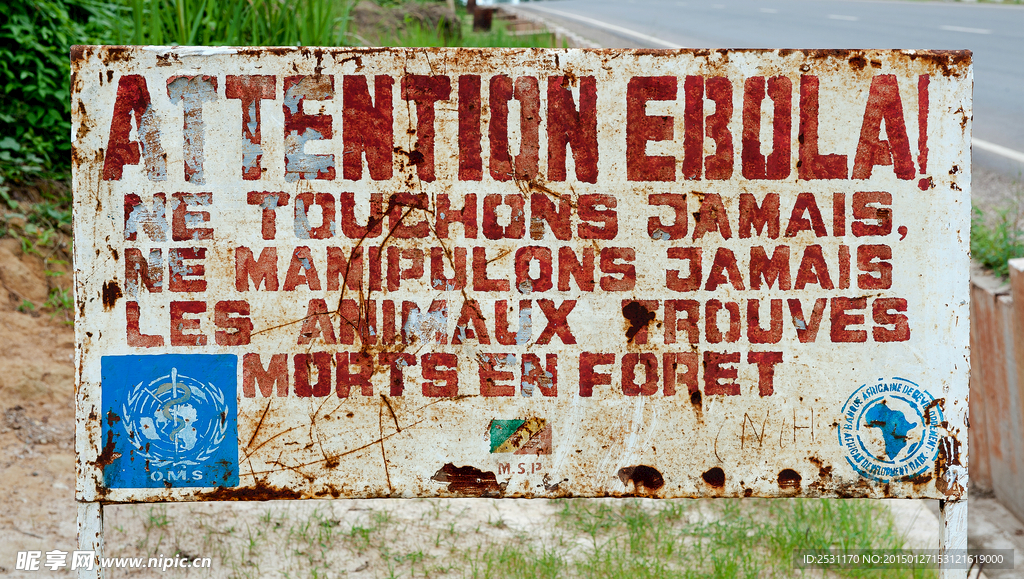 ATTENTION EBOLA!
NE TOUCHONS JAMAIS,
NE MANIPULONS JAMAIS
LES ANIMAUX TROUVES
MORTS EN FORET
O.M.S
M.S.P
BANQUE AFRICAINE DE DEVELOPPEMENT
AFRICAN DEVELOPMENT BANK
昵享网 www.nipic.cn
ID:2531170 NO:20150127153121619000